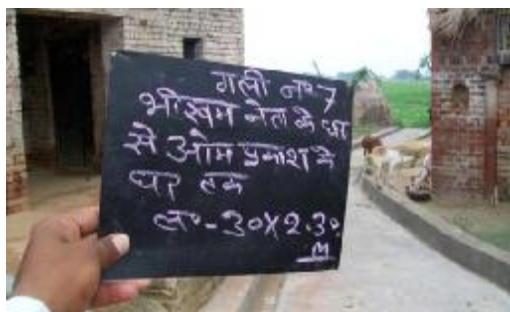 गली नº 7
भीखम नेता के घर
से ओम प्रकाश के
घर तक
लº - 30X2.30
M